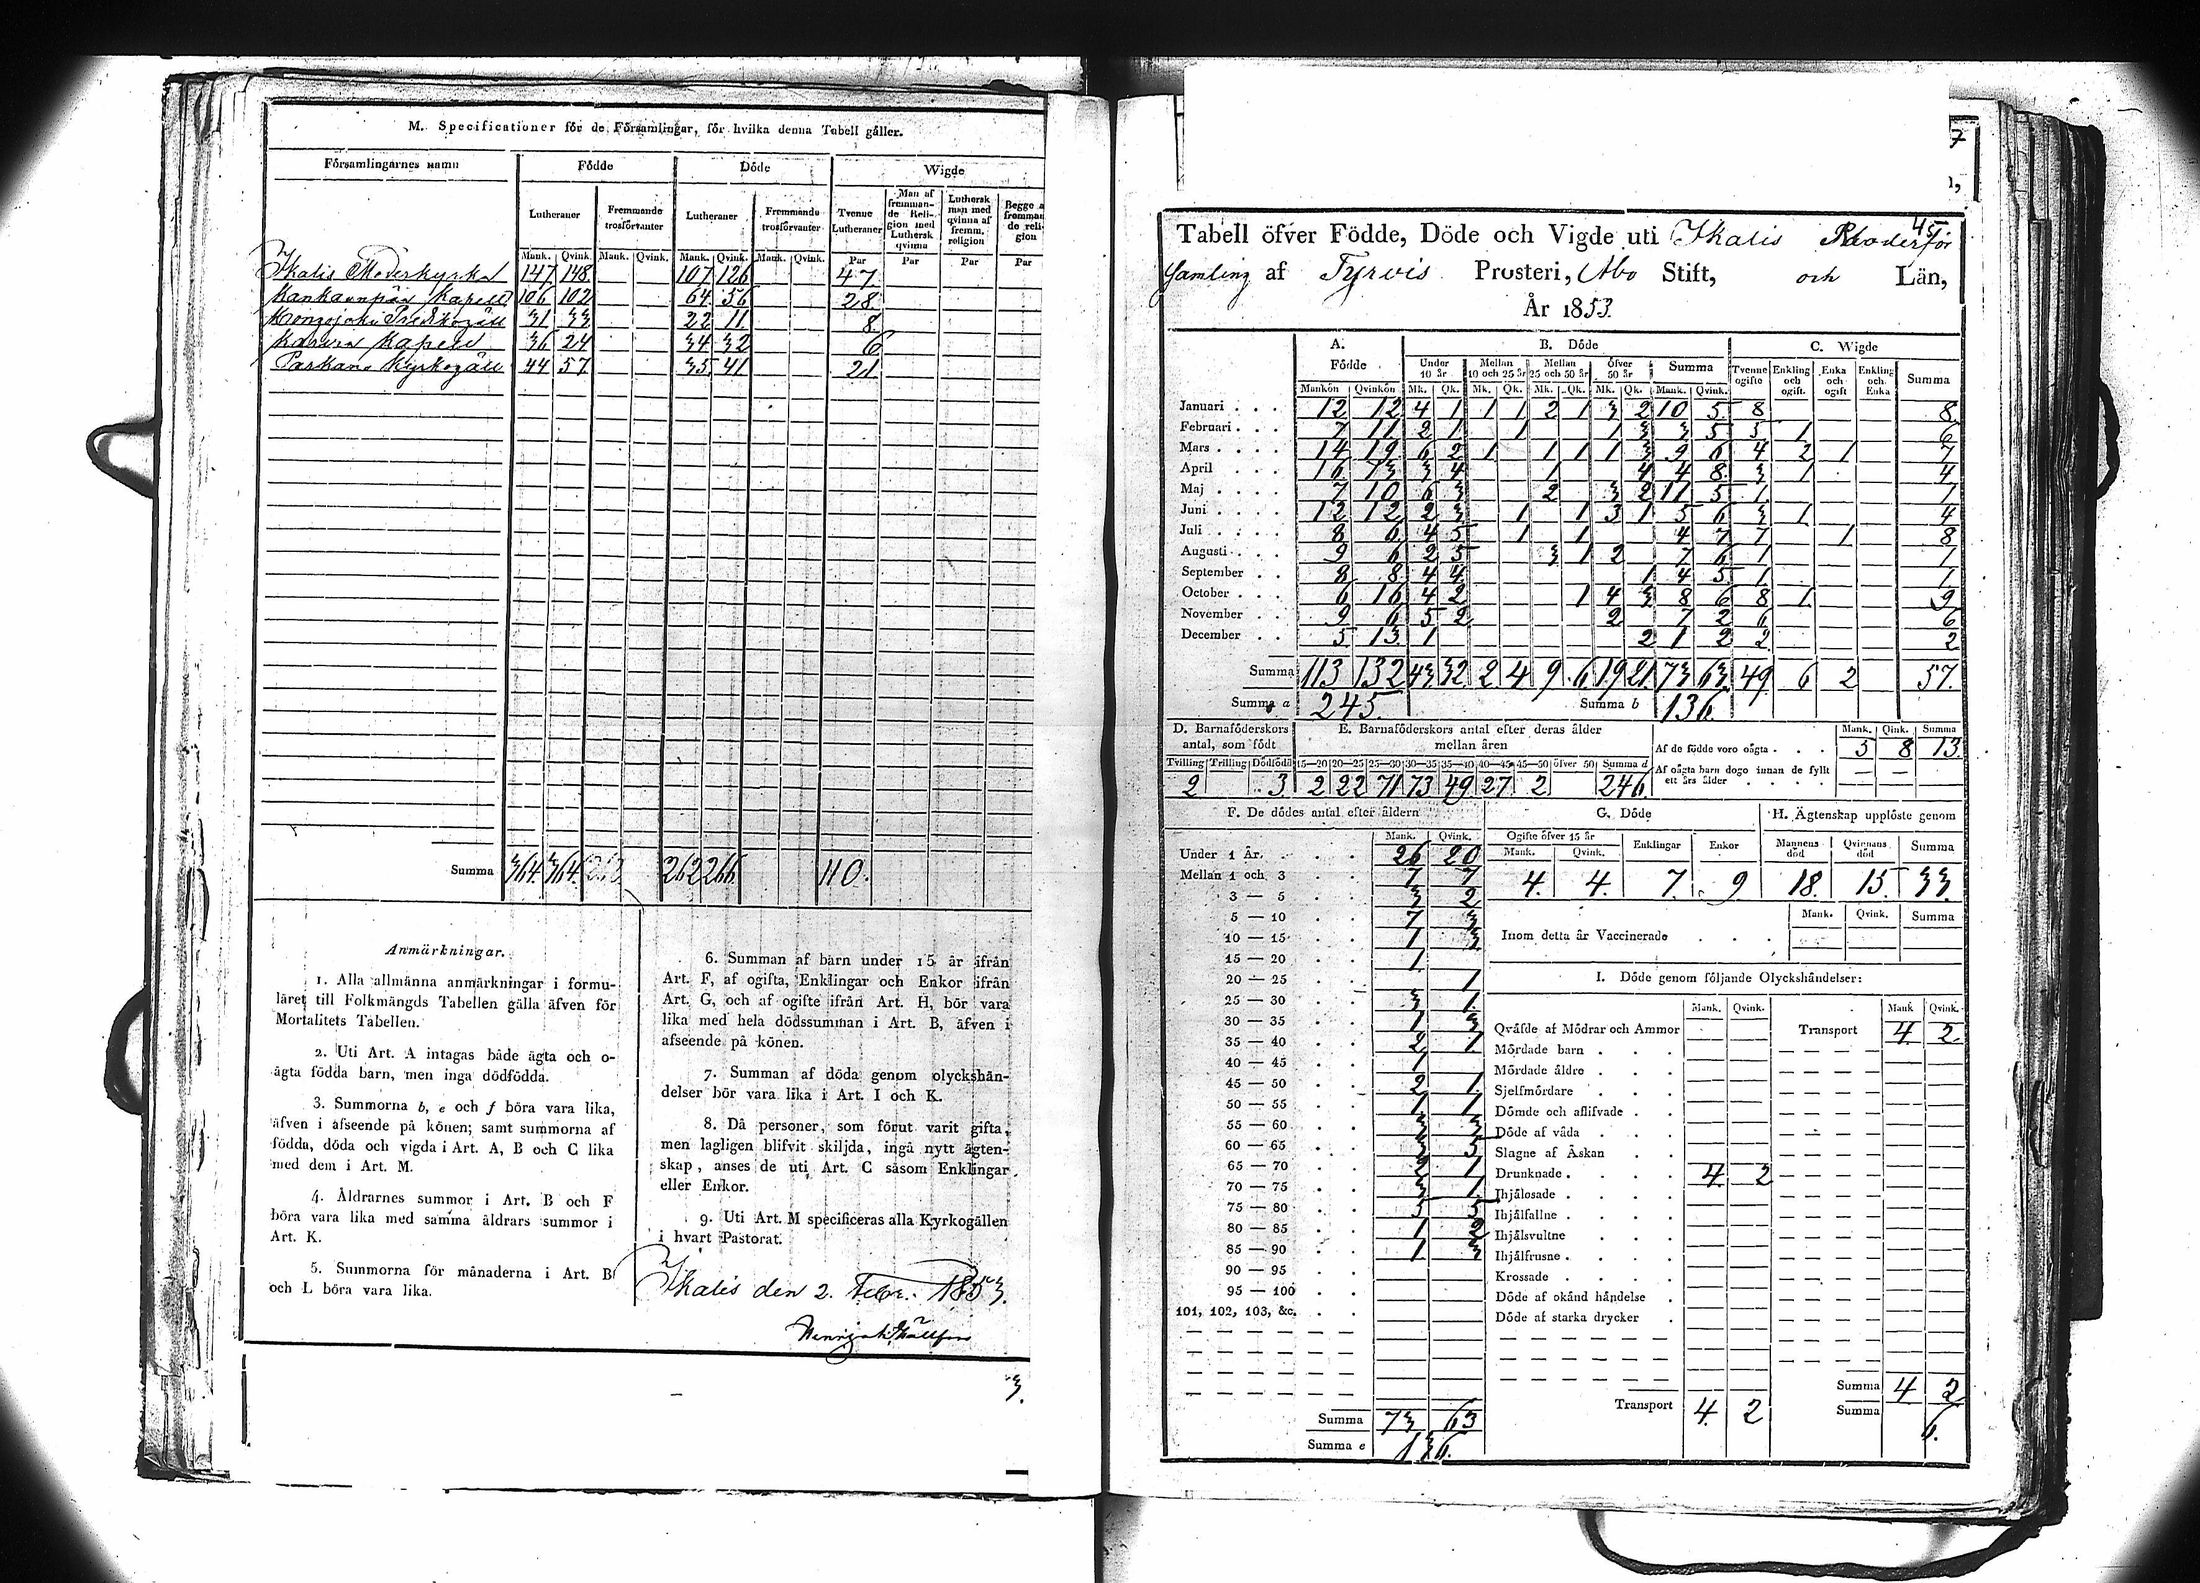 M. Specificationer för de Församlingar, för hvilka denna Tabell gäller.
Församlingarnes namn Födde Döde Wigde
Lutheraner Fremmande trosförvanter Lutheraner Fremmande trosförvanter Tvenne Lutheraner Man af fremmande Religion med Luthersk qvinna Luthersk man med qvinna af fremm. religion Begge af fremmande religion
Mank. Qvink. Mank. Qvink. Mank. Qvink. Mank. Qvink. Par Par Par Par
Ikalis Moderkyrka 147 148 107 126 47
Kankaanpää Kapell 106 102 64 56 28
Hongojoki Predikogäll 31 33 22 11 8
Karvia Kapell 36 24 34 32 6
Parkano Kyrkogäll 44 57 35 41 21
Summa 364 364 262 266 110.
Anmärkningar.
1. Alla allmänna anmärkningar i formu-
läret till Folkmängds Tabellen gälla äfven för
Mortalitets Tabellen.
2. Uti Art. A intagas både ägta och o-
ägta födda barn, men inga dödfödda.
3. Summorna b, e och f böra vara lika,
äfven i afseende på könen; samt summorna af
födda, döda och vigda i Art. A, B och C lika
med dem i Art. M.
4. Åldrarnes summor i Art. B och F
böra vara lika med samma åldrars summor i
Art. K.
5. Summorna för månaderna i Art. B
och L böra vara lika.
6. Summan af barn under 15 år ifrån
Art. F, af ogifta, Enklingar och Enkor ifrån
Art. G, och af ogifte ifrån Art. H, bör vara
lika med hela dödssumman i Art. B, äfven i
afseende på könen.
7. Summan af döda genom olyckshän-
delser bör vara lika i Art. I och K.
8. Då personer, som förut varit gifta,
men lagligen blifvit skiljda, ingå nytt ägten-
skap, anses de uti Art. C såsom Enklingar
eller Enkor.
9. Uti Art. M specificeras alla Kyrkogällen
i hvart Pastorat.
Ikalis den 2. Febr. 1853.
3.
7
45
Tabell öfver Födde, Döde och Vigde uti Ikalis Moderför
samling af Tyrvis Prosteri, Åbo Stift, och Län,
År 1853.
A. Födde B. Döde C. Wigde
Under 10 år Mellan 10 och 25 år Mellan 25 och 50 år öfver 50 år Summa Tvenne ogifte Enkling och ogift. Enka och ogift Enkling och Enka Summa
Mankön Qvinkön Mk. Qk. Mk. Qk. Mk. Qk. Mk. Qk. Mank. Qvink.
Januari 12 12 4 1 1 1 2 1 3 2 10 5 8 8
Februari 7 11 2 1 1 1 3 3 5 5 1 6
Mars 14 19 6 2 1 1 1 1 3 9 6 4 2 1 7
April 16 13 3 4 1 4 4 8 3 1 4
Maj 7 10 6 3 2 3 2 11 5 1 1
Juni 12 12 2 3 1 1 3 1 5 6 3 1 4
Juli 8 6 4 5 1 1 4 7 7 1 8
Augusti 9 6 2 5 3 1 2 7 6 1 1
September 8 8 4 4 1 4 5 1 1
October 6 16 4 2 1 4 3 8 6 8 1 9
November 9 6 5 2 2 7 2 6 6
December 5 13 1 2 1 2 2 2
Summa 113 132 43 32 2 4 9 6 19 21 73 63 49 6 2 57.
Summa a 245. Summa b 136.
D. Barnaföderskors antal, som födt E. Barnaföderskors antal efter deras ålder mellan åren
Tvilling Trilling Dödfödd 15—20 20—25 25—30 30—35 35—40 40—45 45—50 öfver 50 Summa d
2 3 2 22 71 73 49 27 2 246
Mank. Qink. Summa
Af de födde voro oägta 5 8 13
Af oägta barn dogo innan de fyllt
ett års ålder
F. De dödes antal efter åldern
Mank. Qvink.
Under 1 År. 26 20
Mellan 1 och 3 7 7
3 — 5 3 2
5 — 10 7 3
10 — 15 1 3
15 — 20 1
20 — 25 1
25 — 30 3 1
30 — 35 1 3
35 — 40 2 1
40 — 45 1
45 — 50 2 1
50 — 55 1 1
55 — 60 3 3
60 — 65 3 5
65 — 70 2 1
70 — 75 3 1
75 — 80 5 5
80 — 85 1 2
85 — 90 1 3
90 — 95
95 — 100
101, 102, 103, &c.
Summa 73 63
Summa e 136.
G. Döde H. Ägtenskap upplöste genom
Ogifte öfver 15 år Enklingar Enkor Mannens död Qvinnans död Summa
Mank. Qvink.
4. 4. 7. 9 18. 15 33.
Mank. Qvink. Summa
Inom detta år Vaccinerade
I. Döde genom följande Olyckshändelser:
Mank. Qvink. Mank Qvink.
Qväfde af Mödrar och Ammor Transport 4 2
Mördade barn
Mördade äldre
Sjelfmördare
Dömde och aflifvade
Döde af våda
Slagne af Åskan
Drunknade 4 2
Ihjälosade
Ihjälfallne
Ihjälsvultne
Ihjälfrusne
Krossade
Döde af okänd händelse
Döde af starka drycker
Summa 4 2
Transport 4 2 Summa 6.